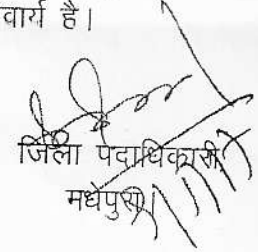 वार्य है।
जिला पदाधिकारी
मधेपुरा।